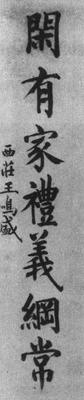 閑有家禮義綱常
西莊王鳴盛